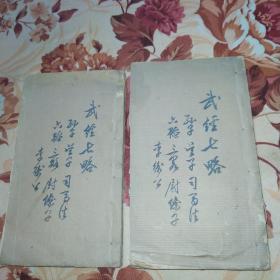 武經七略
孙子 吴子 司马法
六韜 三略 尉繚子
李衛公
武經七略
孙子 吴子 司马法
六韜 三略 尉繚子
李衛公